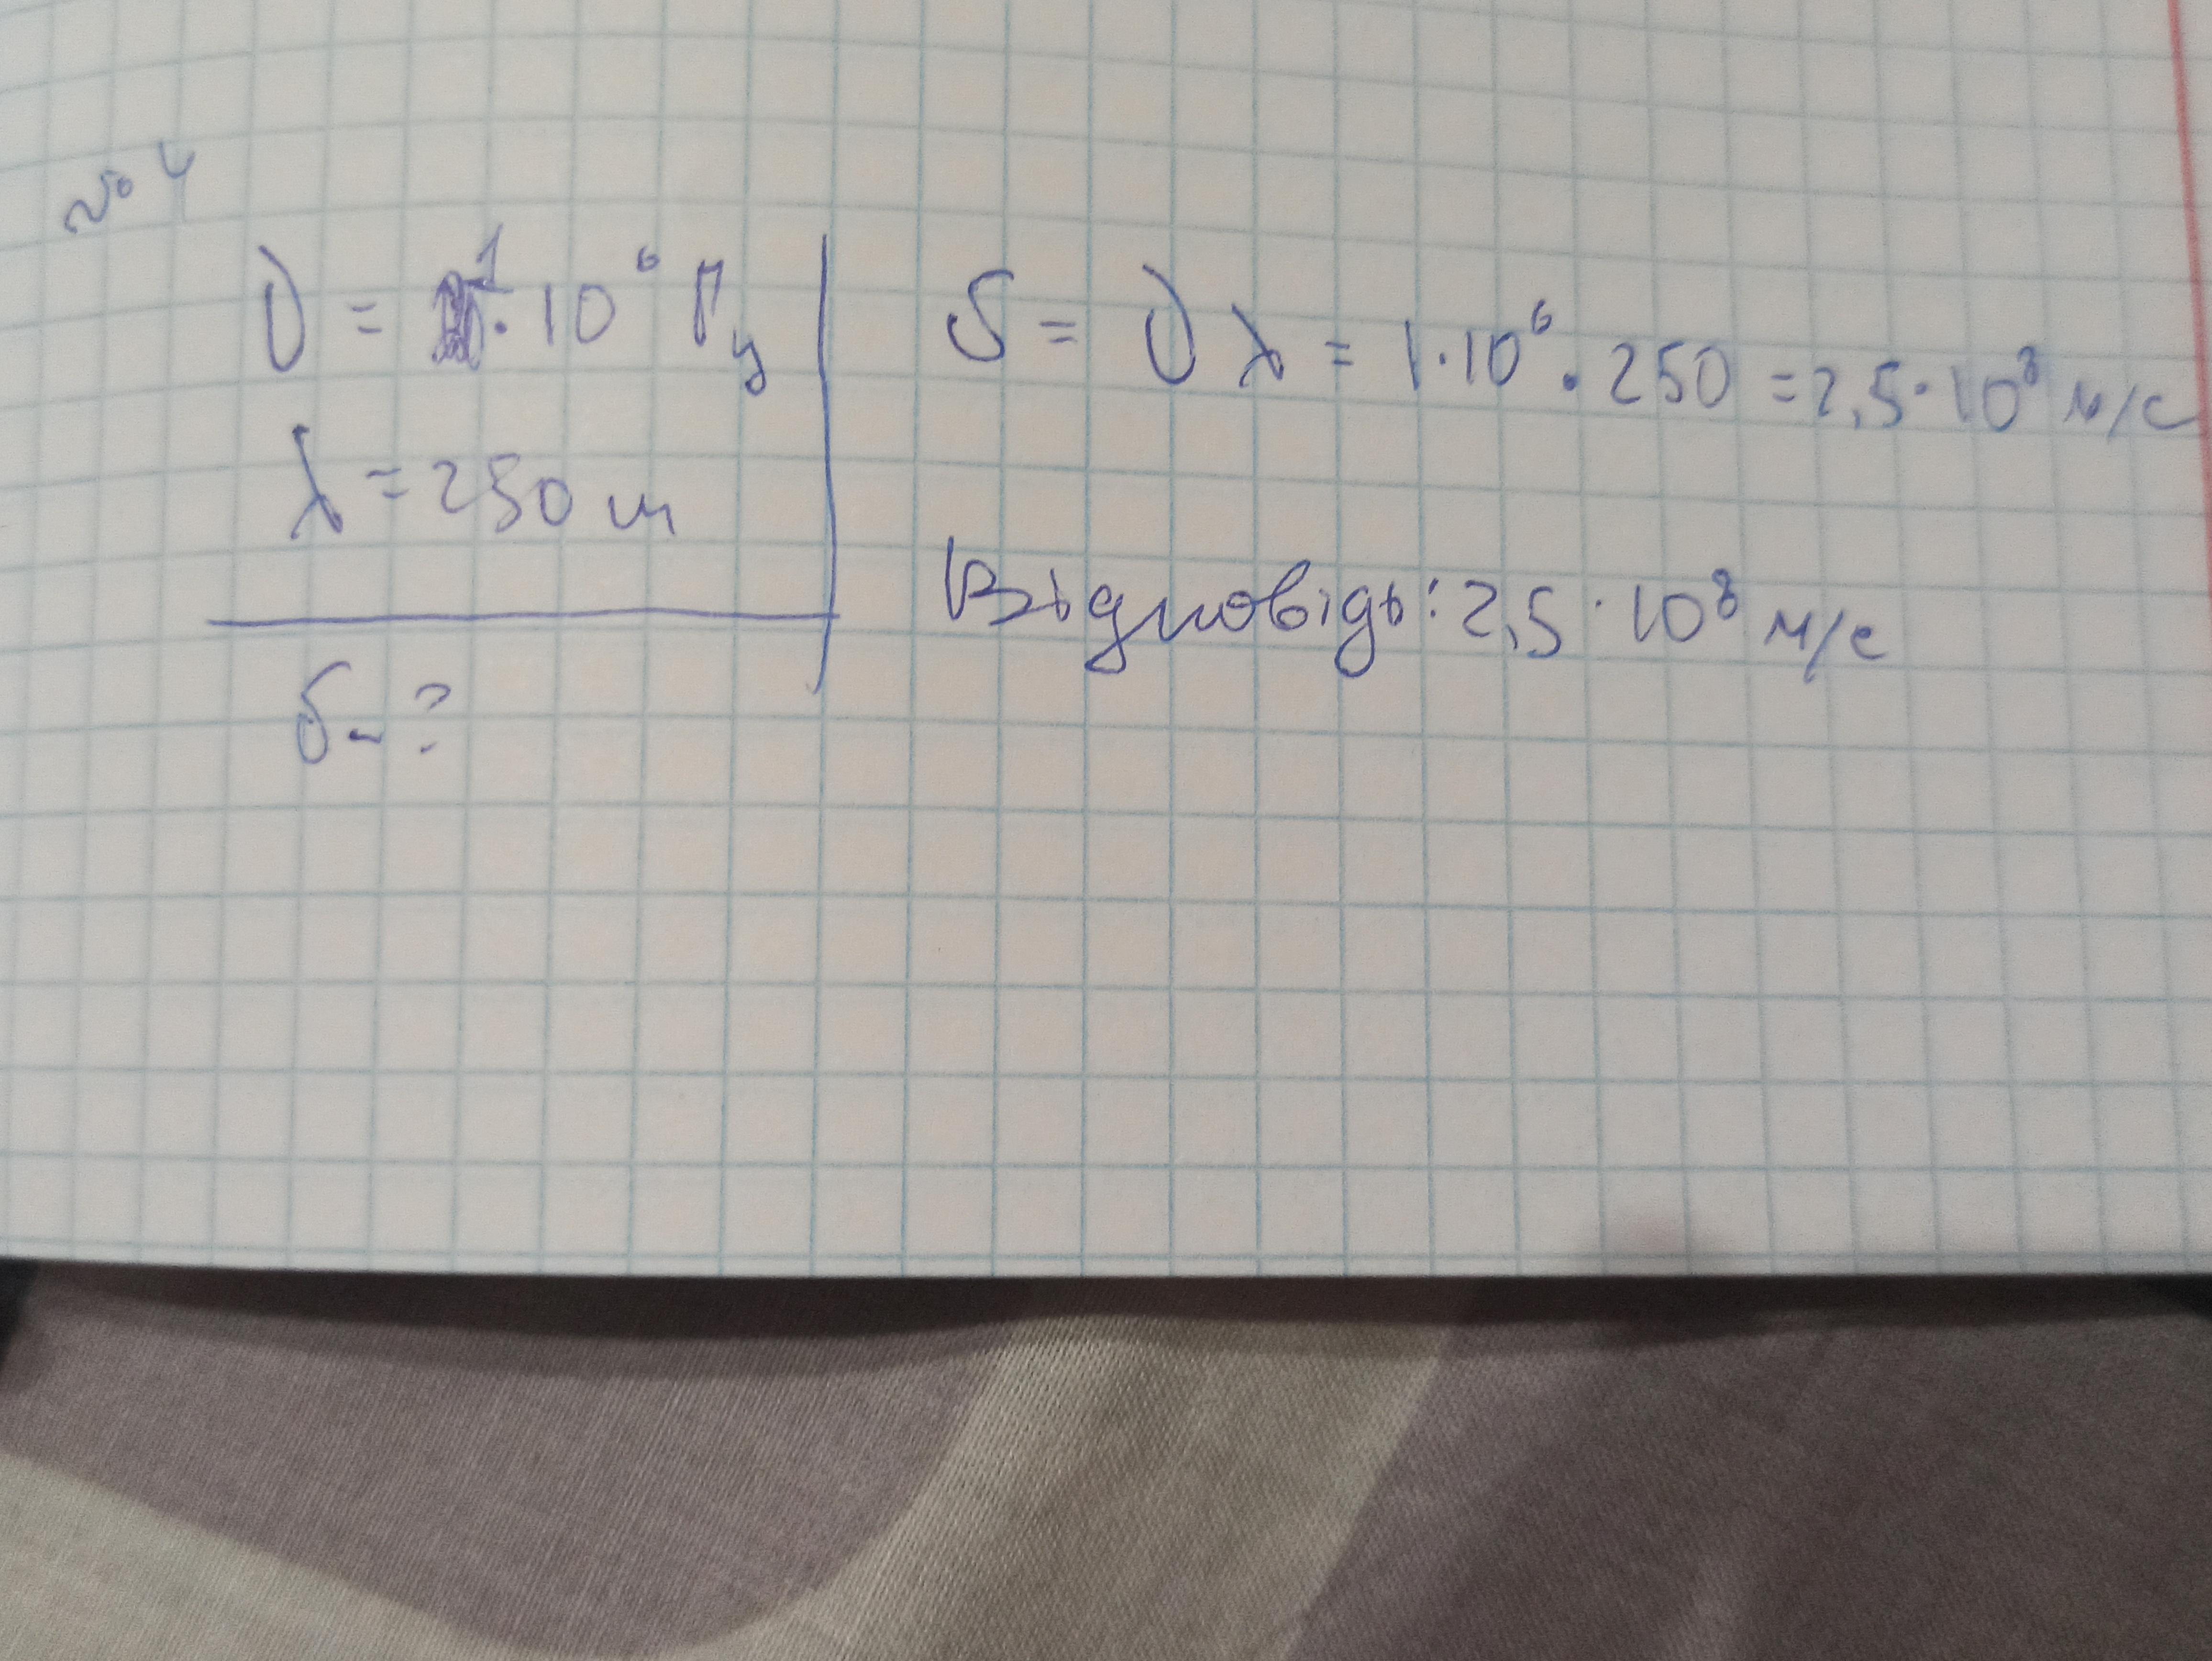 № 4
υ = 1 · 10⁶ Гц
λ = 250 м
б - ?
б = υ λ = 1 · 10⁶ · 250 = 2,5 · 10⁸ м/с
Відповідь: 2,5 · 10⁸ м/с